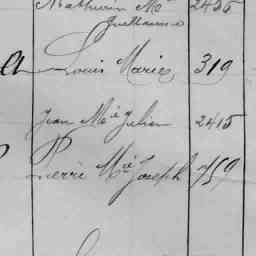 Mathurin Me 2435
Guillaume
Louis Marie 319
Jean Mie Julien 2415
Pierre Mie Joseph 759